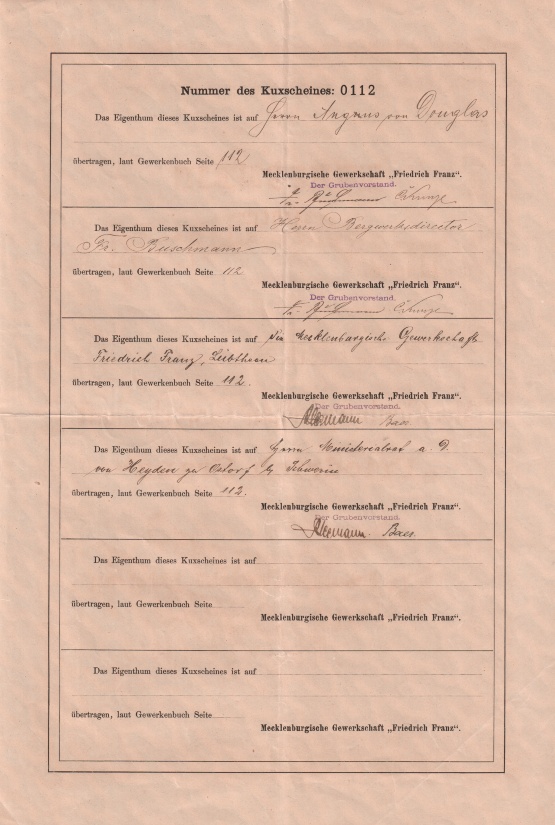 Nummer des Kuxscheines: 0112
Das Eigenthum dieses Kuxscheines ist auf Herrn Angus von Douglas
übertragen, laut Gewerkenbuch Seite 112
Mecklenburgische Gewerkschaft „Friedrich Franz“.
Der Grubenvorstand.
Das Eigenthum dieses Kuxscheines ist auf Herrn Bergwerksdirector
Fr. Buschmann
übertragen, laut Gewerkenbuch Seite 112
Mecklenburgische Gewerkschaft „Friedrich Franz“.
Der Grubenvorstand.
Das Eigenthum dieses Kuxscheines ist auf die Mecklenburgische Gewerkschaft
Friedrich Franz, Lübtheen
übertragen, laut Gewerkenbuch Seite 112.
Mecklenburgische Gewerkschaft „Friedrich Franz“.
Der Grubenvorstand.
Baer
Das Eigenthum dieses Kuxscheines ist auf Herrn Ministerialrat a. D.
von Heyden zu Ostorf by Schwerin
übertragen, laut Gewerkenbuch Seite 112.
Mecklenburgische Gewerkschaft „Friedrich Franz“.
Der Grubenvorstand.
Baer
Das Eigenthum dieses Kuxscheines ist auf
übertragen, laut Gewerkenbuch Seite
Mecklenburgische Gewerkschaft „Friedrich Franz“.
Das Eigenthum dieses Kuxscheines ist auf
übertragen, laut Gewerkenbuch Seite
Mecklenburgische Gewerkschaft „Friedrich Franz“.